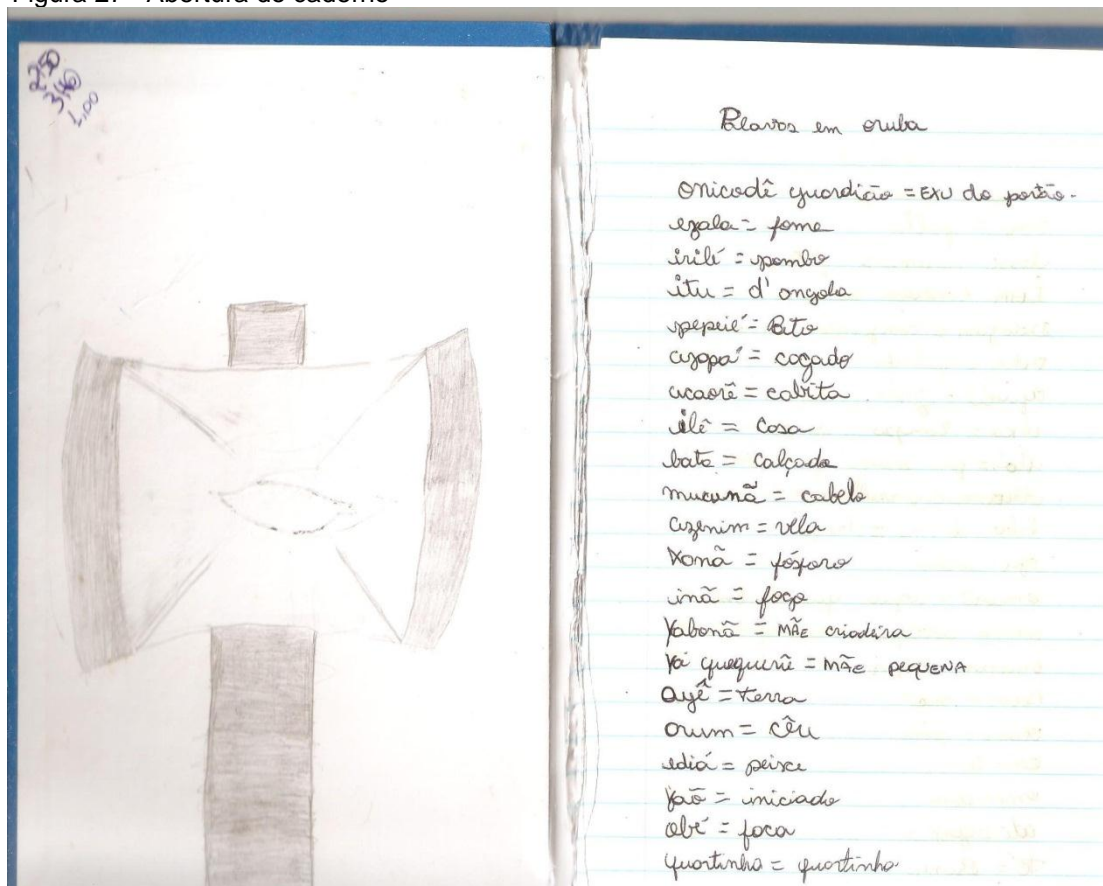 Figura 27 - Abertura do caderno
2,50
3,40
1,00
Palavras em oruba
Onicodê guardião = EXU do portão -
= fome
irilé = pombo
itu = d' angola
pepeié = Pato
= cagado
= cabrita
ilê = casa
bata = calçada
mucunã = cabelo
azenim = vela
xonã = fósforo
inã = fogo
Yabonã = MÃE criadeira
Yá quequerê = MÃE PEQUENA
ayê = terra
orum = céu
ediá = peixe
Yaô = iniciado
obé = faca
quartinha = quartinha